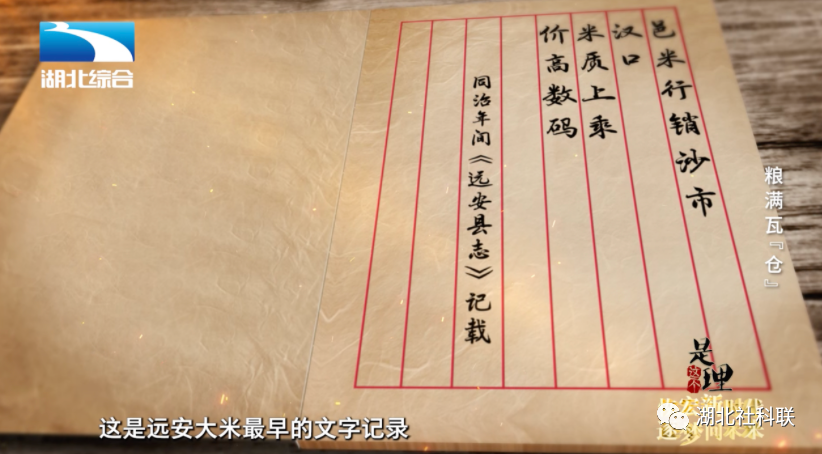 湖北综合
邑米行销沙市
汉口
米质上乘
价高数码
同治年间《远安县志》记载
粮满瓦『仓』
是这个理
新时代
湖北社科联
这是远安大米最早的文字记录